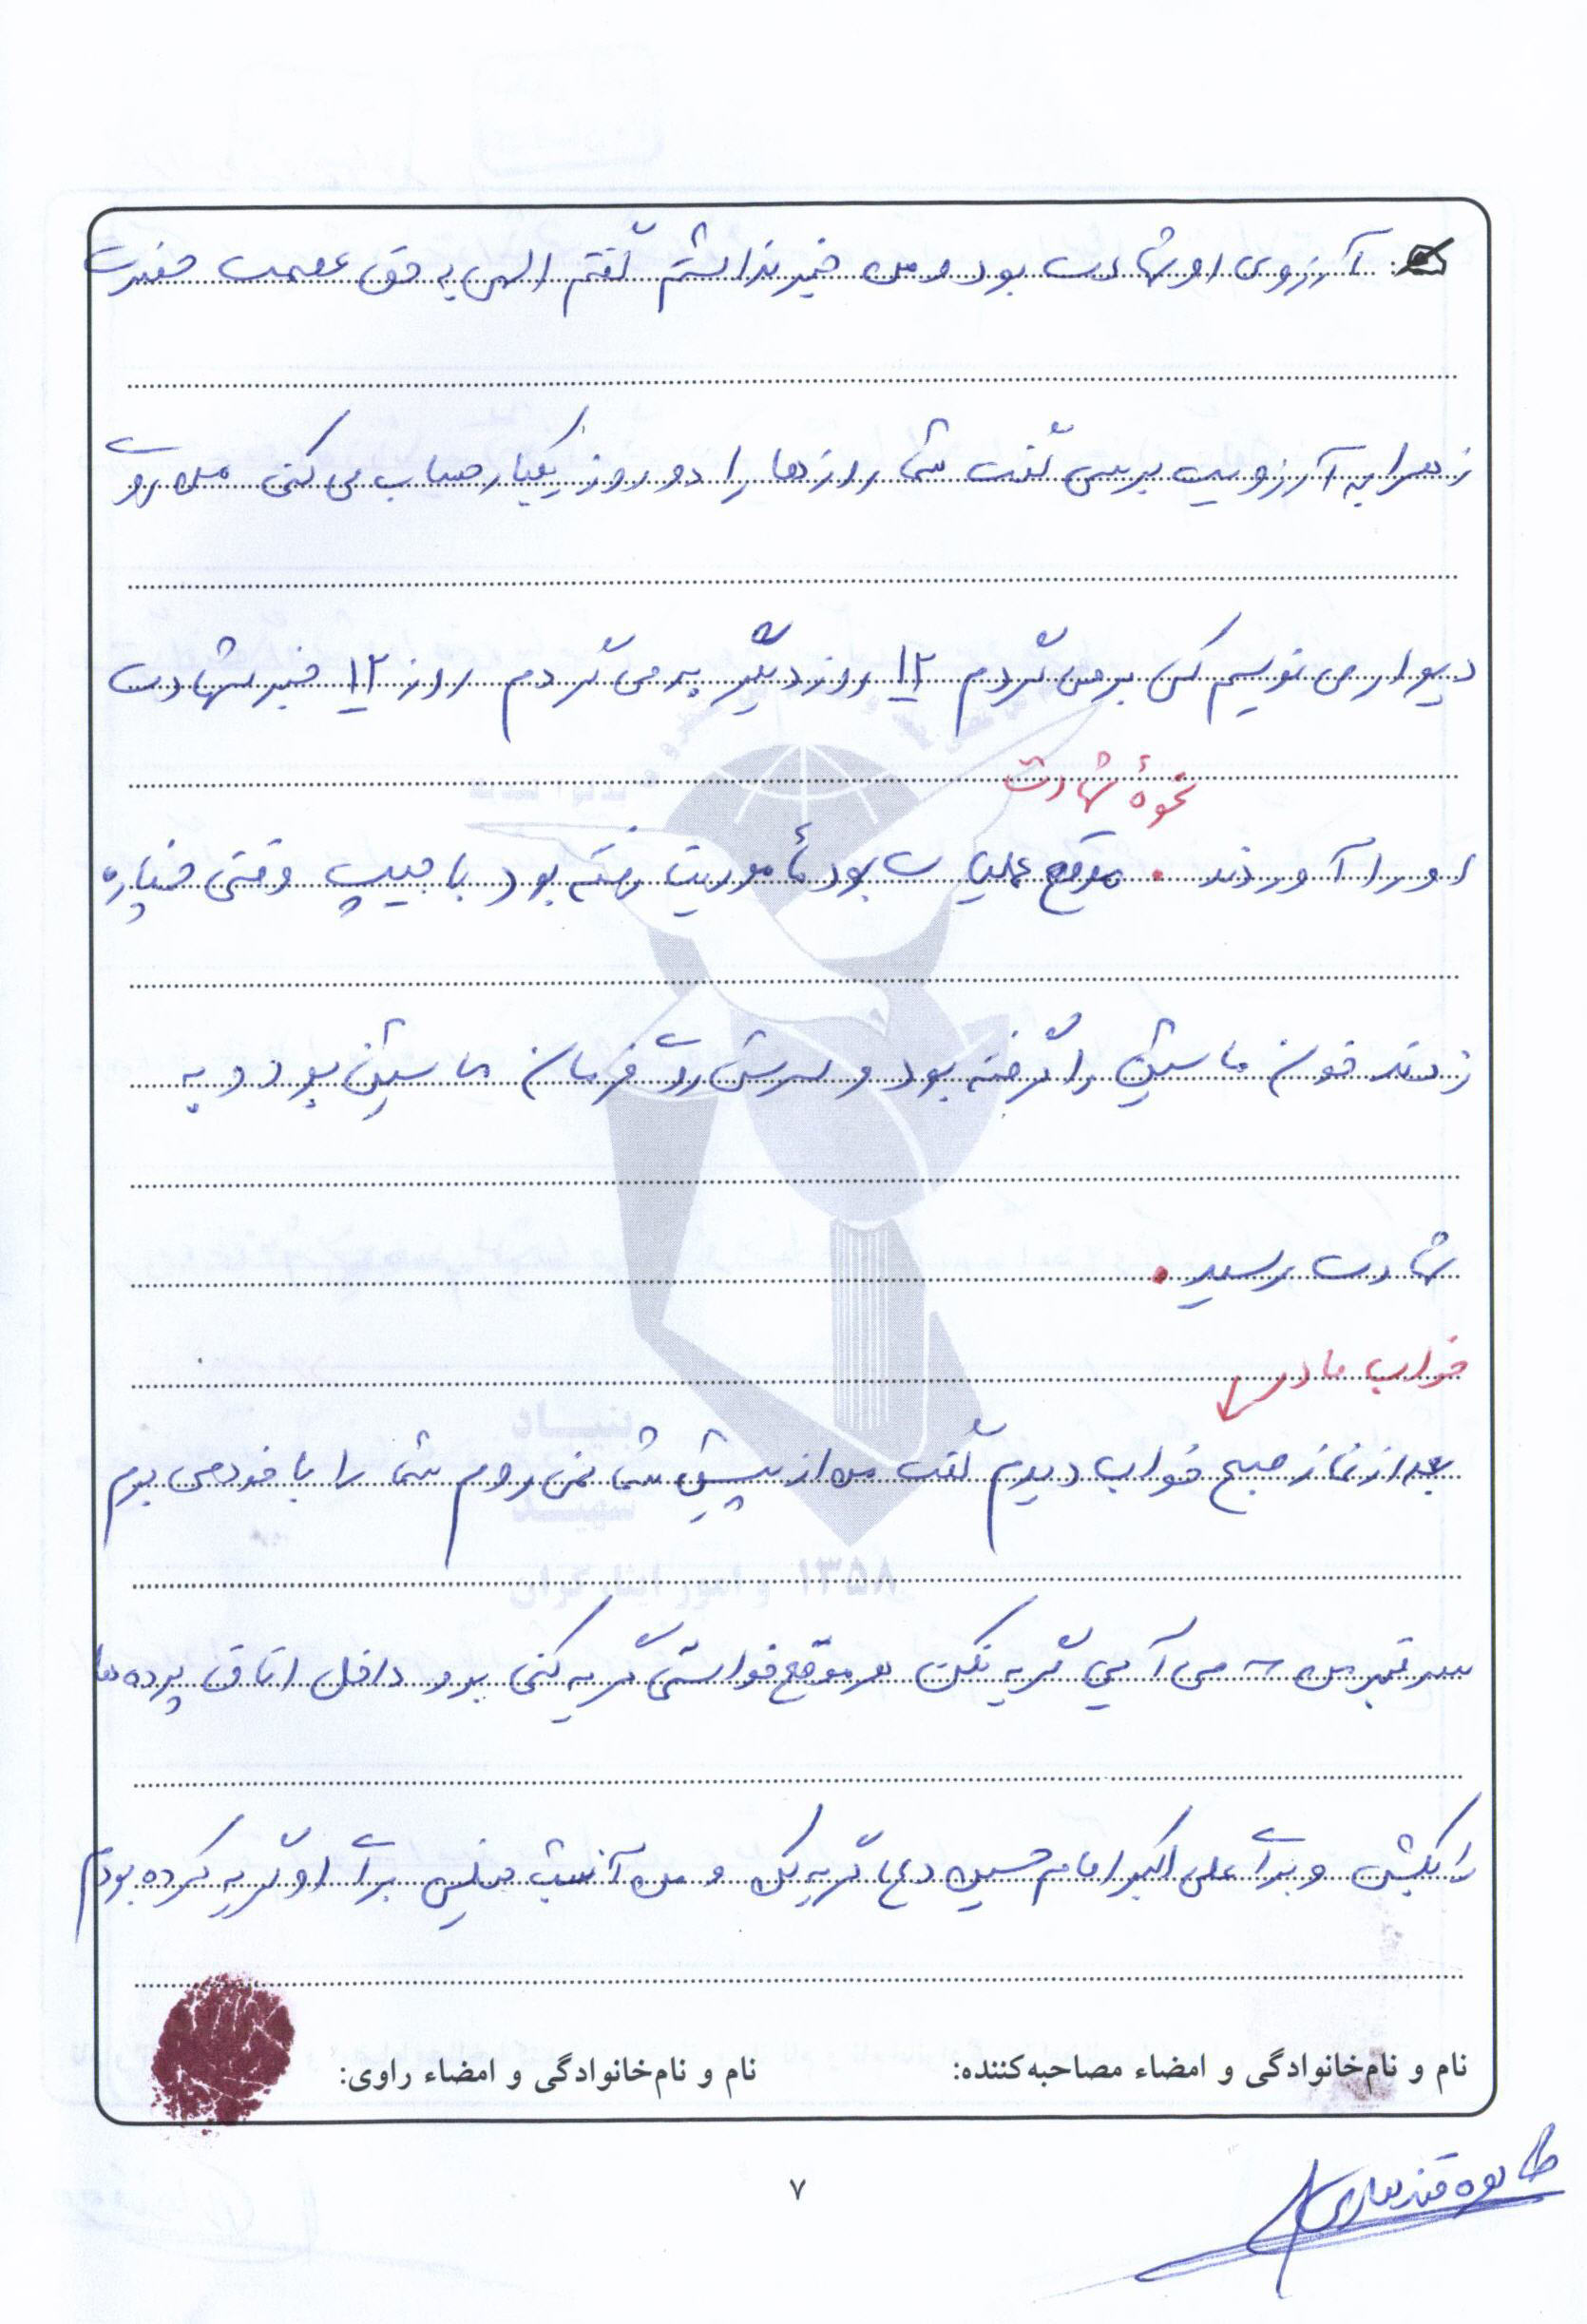 آرزوی او شهادت بود و من خبر نداشتم گفتم الهی به حق عصمت حضرت
زهرا به آرزویت برسی گفت شما روزها را دو روز یکبار حساب می کنی من روی
دیوار می نویسم کی بر می گردم ۱۲ روز دیگر بر می گردم روز ۱۲ خبر شهادت
نحوهٔ شهادت
او را آوردند . موقع عملیات بود مأموریت رفته بود با جیپ وقتی خمپاره
زدند خون ماشین را گرفته بود و سرش روی فرمان ماشین بود و به
شهادت رسید .
خواب مادر
بعد از نماز صبح خواب دیدم گفت من از پیش شما نمی روم شما را با خود می برم
سر قبر من می آیی گریه نکن هر موقع خواستی گریه کنی برو داخل اتاق پرده ها
را بکش و برای علی اکبر امام حسین گریه کن و من آنشب خیلی برای او گریه کرده بودم
نام و نام‌خانوادگی و امضاء مصاحبه‌کننده: نام و نام‌خانوادگی و امضاء راوی:
۷
طاهره قندهاری
بنیاد
شهید
و امور ایثارگران ۱۳۵۸